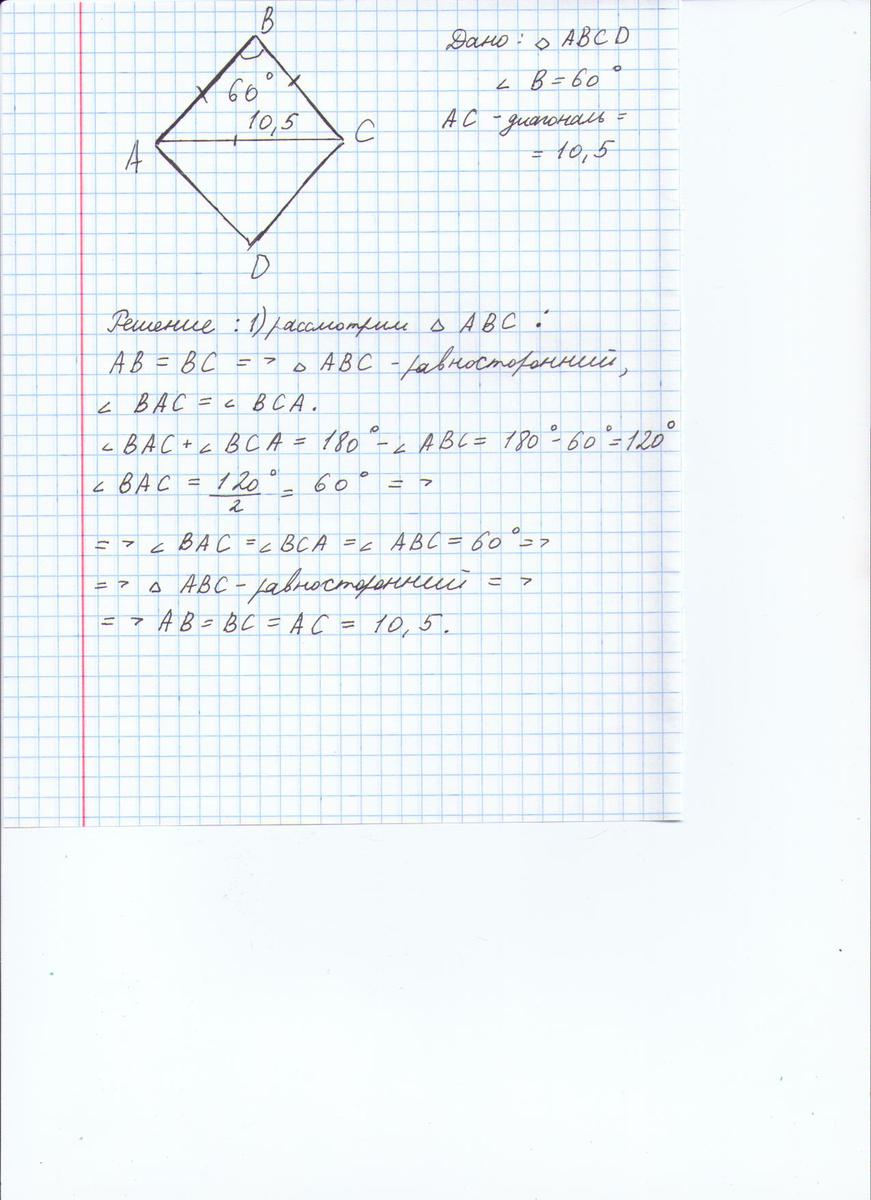 B
60°
10,5
A
C
D
Дано: △ ABCD
∠ B = 60°
AC - диагональ =
= 10,5
Решение: 1) рассмотрим △ ABC:
AB = BC => △ ABC - равносторонний,
∠ BAC = ∠ BCA.
∠ BAC + ∠ BCA = 180° - ∠ ABC = 180° - 60° = 120°
∠ BAC = 120°/2 = 60° =>
=> ∠ BAC = ∠ BCA = ∠ ABC = 60° =>
=> △ ABC - равносторонний =>
=> AB = BC = AC = 10,5.